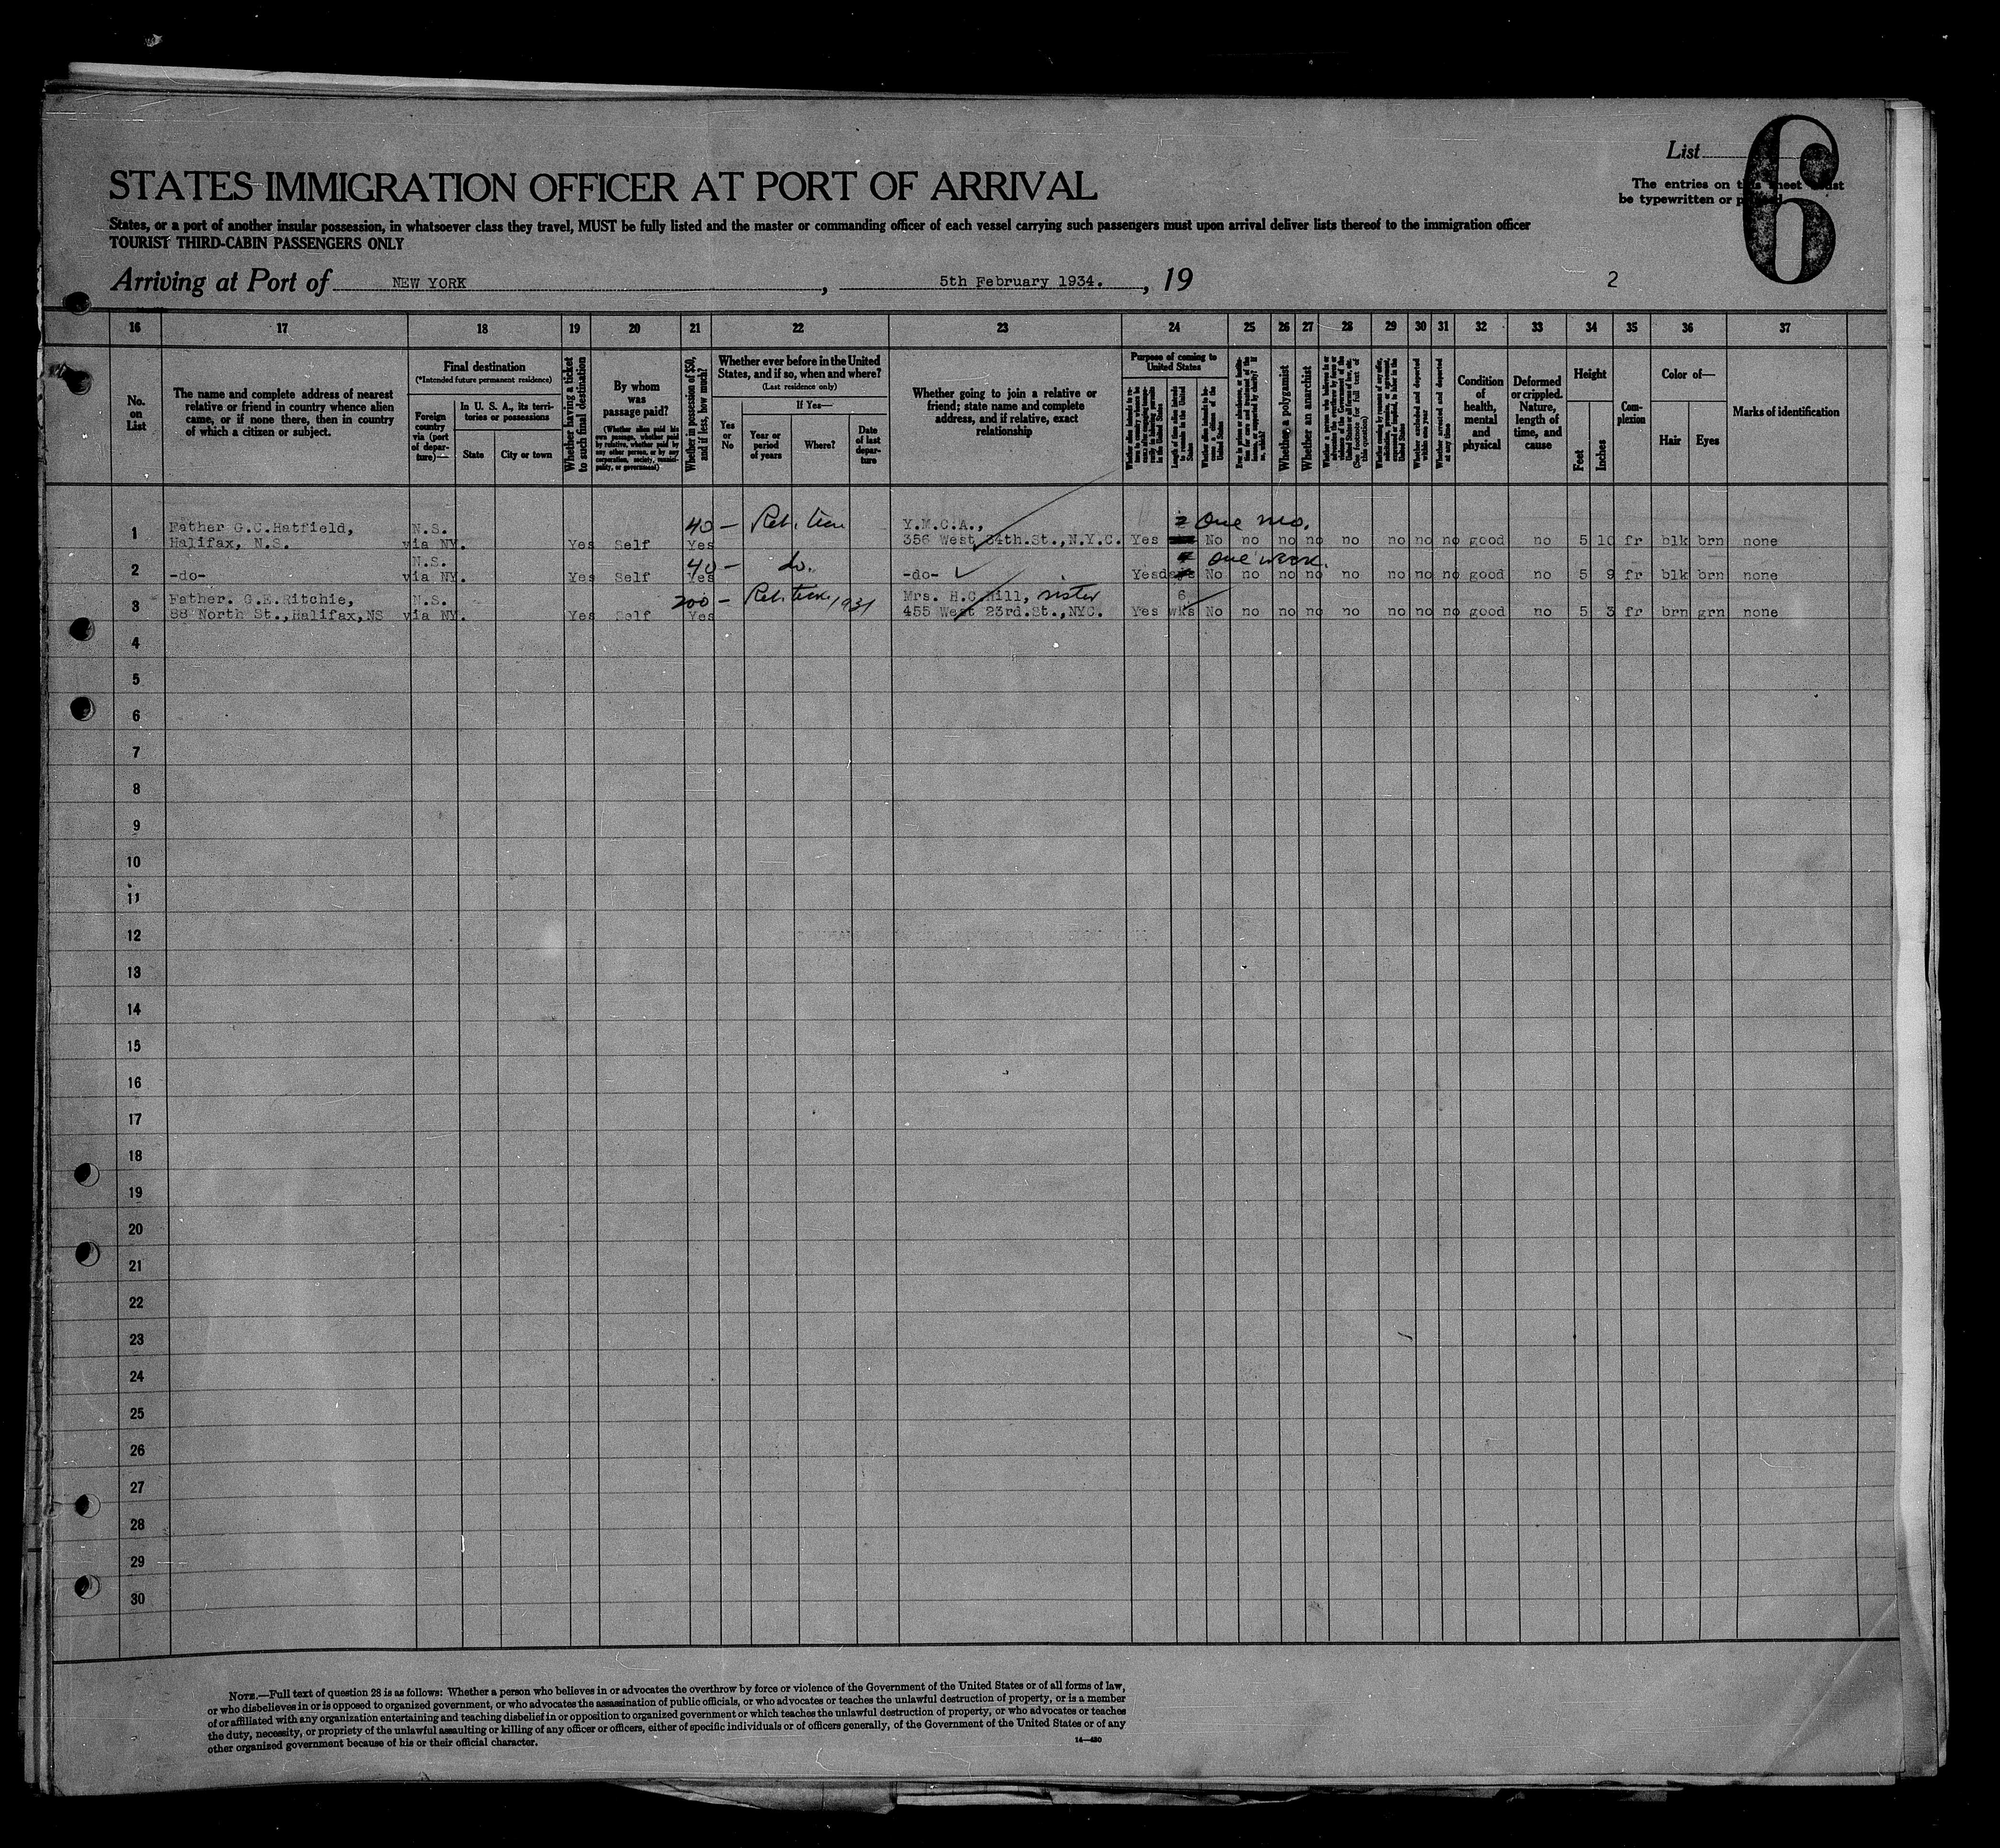 List
6
The entries on this sheet must
be typewritten or printed.
STATES IMMIGRATION OFFICER AT PORT OF ARRIVAL
States, or a port of another insular possession, in whatsoever class they travel, MUST be fully listed and the master or commanding officer of each vessel carrying such passengers must upon arrival deliver lists thereof to the immigration officer
TOURIST THIRD-CABIN PASSENGERS ONLY
Arriving at Port of NEW YORK, 5th February 1934., 19 2
16 17 18 19 20 21 22 23 24 25 26 27 28 29 30 31 32 33 34 35 36 37
No. on List
The name and complete address of nearest
relative or friend in country whence alien
came, or if none there, then in country
of which a citizen or subject.
Final destination
(*Intended future permanent residence)
Foreign country via (port of departure)—
In U. S. A., its territories or possessions
State
City or town
Whether having a ticket to such final destination
By whom was passage paid?
(Whether alien paid his own passage, whether paid by relative, whether paid by any other person, or by any corporation, society, municipality, or government)
Whether in possession of $50, and if less, how much?
Whether ever before in the United
States, and if so, when and where?
(Last residence only)
Yes or No
If Yes—
Year or period of years
Where?
Date of last departure
Whether going to join a relative or
friend; state name and complete
address, and if relative, exact
relationship
Purpose of coming to United States
Length of time alien intends to remain in the United States
Whether alien intends to become a citizen of the United States
Whether a polygamist
Whether an anarchist
(See footnote for full text of this question)
Whether arrested and deported within one year
Whether arrested and deported at any time
Condition of health, mental and physical
Deformed or crippled. Nature, length of time, and cause
Height
Feet
Inches
Complexion
Color of—
Hair
Eyes
Marks of identification
1 Father G.C.Hatfield, N.S. 40 — Y.M.C.A., 2 One mo.
Halifax, N.S. via NY. Yes Self Yes 356 West 34th.St.,N.Y.C. Yes No no no no no no no no good no 5 10 fr blk brn none
2 N.S. 40 — do. one week.
-do- via NY. Yes Self Yes -do- Yes days No no no no no no no no good no 5 9 fr blk brn none
3 Father. G.E.Ritchie, N.S. 200 — 1931 Mrs. H.C.Hill, sister 6
88 North St.,Halifax,NS via NY. Yes Self Yes 455 West 23rd.St.,NYC. Yes wks No no no no no no no no good no 5 3 fr brn grn none
4
5
6
7
8
9
10
11
12
13
14
15
16
17
18
19
20
21
22
23
24
25
26
27
28
29
30
NOTE.—Full text of question 28 is as follows: Whether a person who believes in or advocates the overthrow by force or violence of the Government of the United States or of all forms of law,
or who disbelieves in or is opposed to organized government, or who advocates the assassination of public officials, or who advocates or teaches the unlawful destruction of property, or is a member
of or affiliated with any organization entertaining and teaching disbelief in or opposition to organized government or which teaches the unlawful destruction of property, or who advocates or teaches
the duty, necessity, or propriety of the unlawful assaulting or killing of any officer or officers, either of specific individuals or of officers generally, of the Government of the United States or of any
other organized government because of his or their official character.
14—430